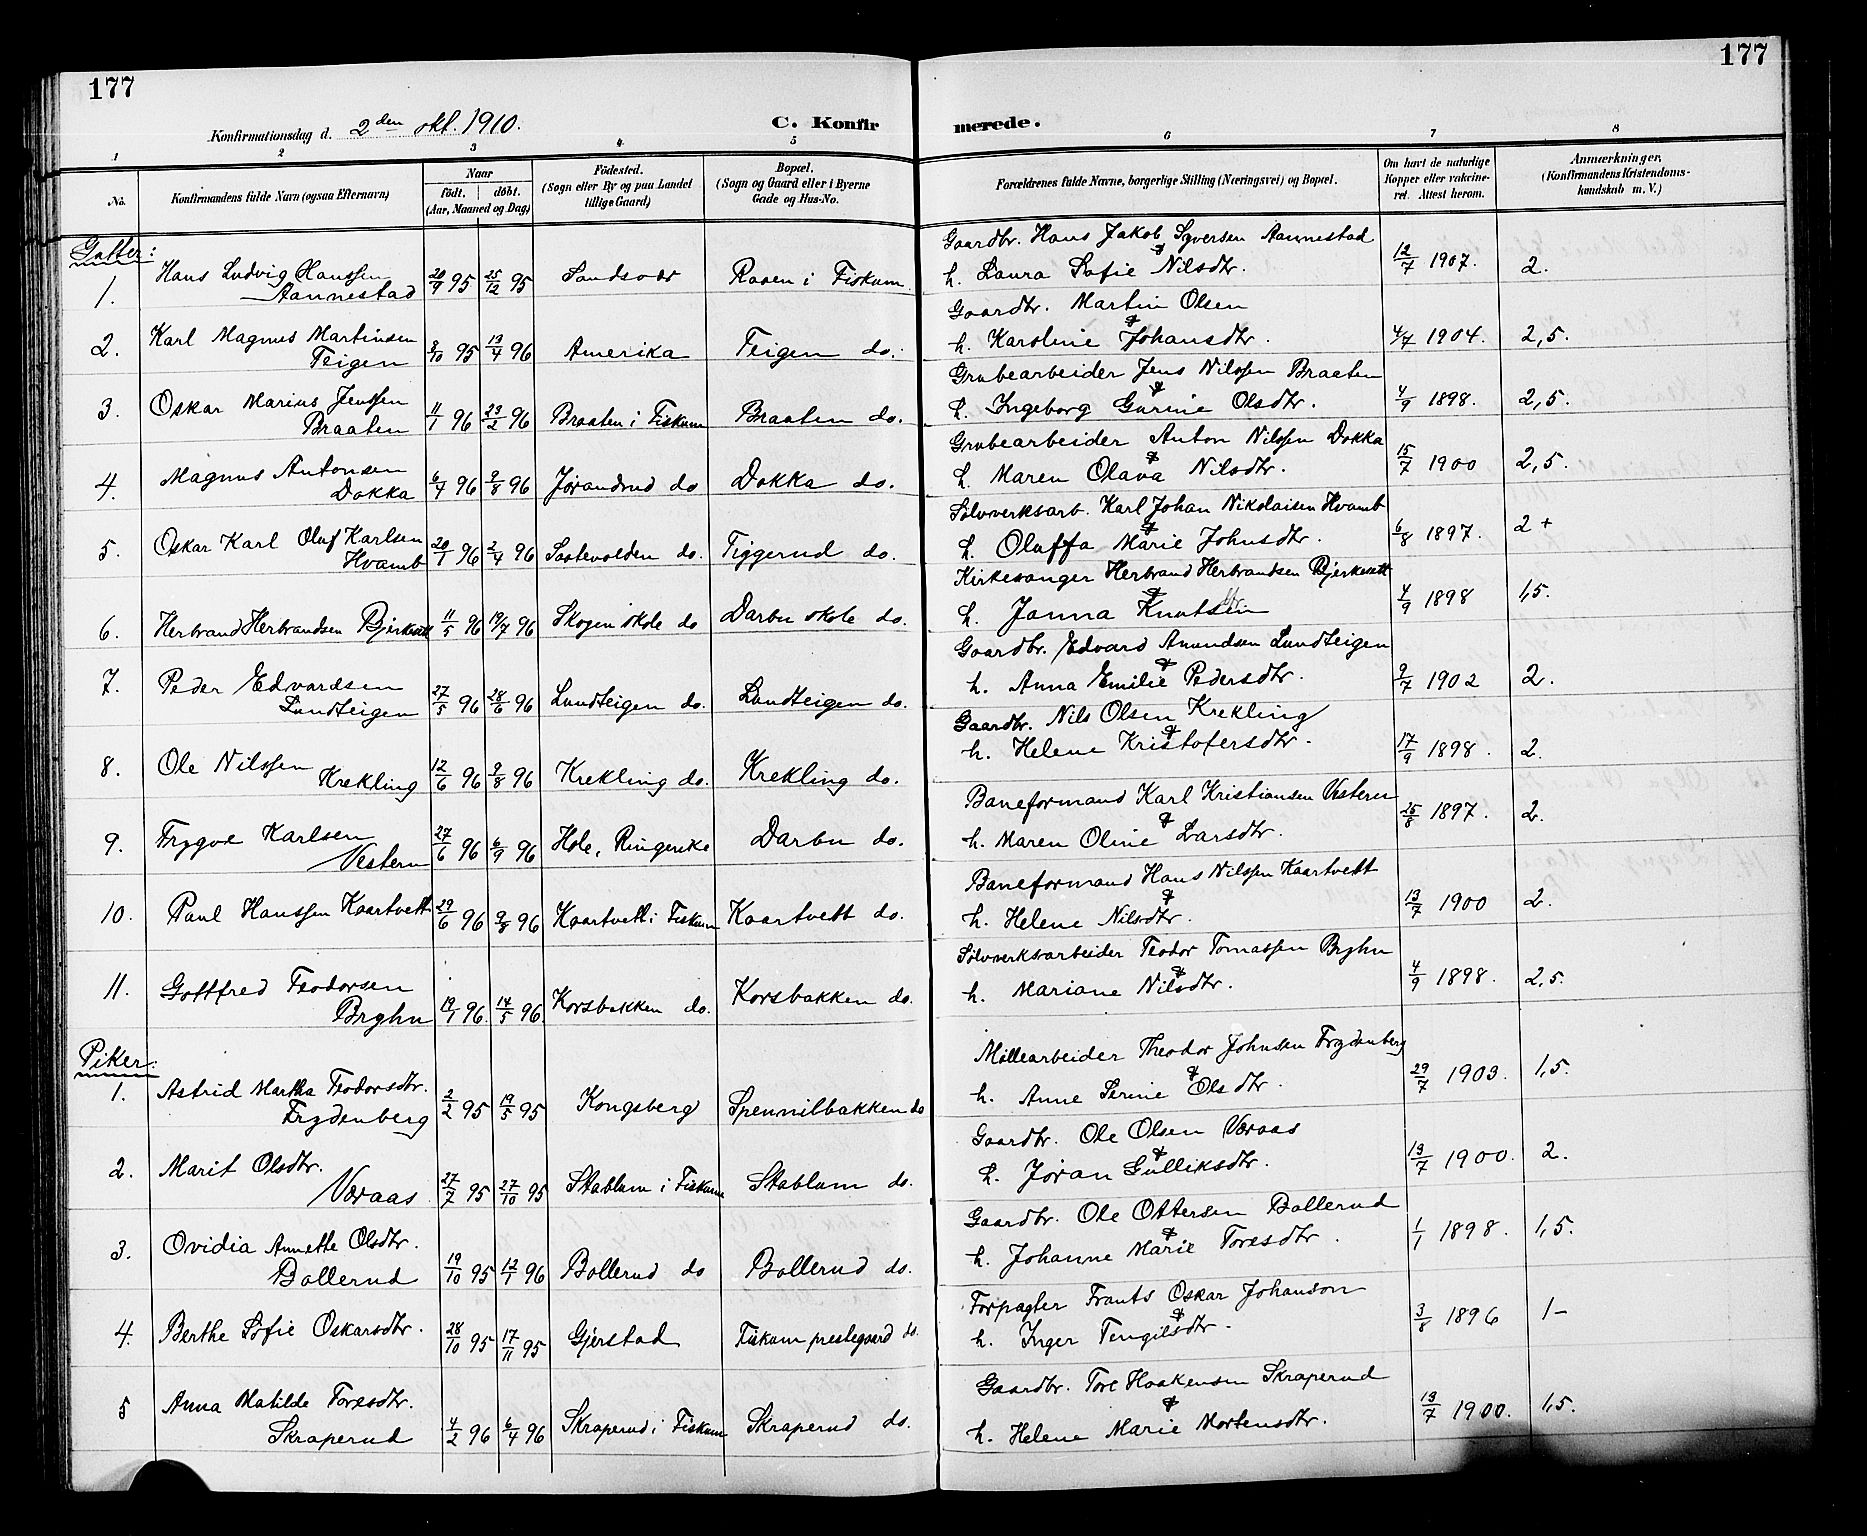 177
177
Konfirmationsdag d. 2den okt. 1910.
C. Konfirmerede.
1 2 3 4 5 6 7 8
No.
Konfirmandens fulde Navn (ogsaa Efternavn)
Naar
født. døbt.
(Aar, Maaned og Dag)
Fødested.
(Sogn eller By og paa Landet
tillige Gaard)
Bopæl.
(Sogn og Gaard eller i Byerne
Gade og Hus-No.
Forældrenes fulde Navne, borgerlige Stilling (Næringsvei) og Bopæl.
Om havt de naturlige
Kopper eller vakcine-
ret. Attest herom.
Anmærkninger.
(Konfirmandens Kristendoms-
kundskab m. V.)
Gutter:
1. Hans Ludvig Hanssen Aannestad 20/9 95 25/12 95 Sandsvær Raaen i Fiskum. Gaardbr. Hans Jakob Syversen Aannestad & h. Laura Sofie Nilsdtr. 12/7 1907. 2.
2. Karl Magnus Martinsen Teigen 8/10 95 13/4 96 Amerika Teigen do. Gaardbr. Martin Olsen & h. Karoline Johansdtr. 4/7 1904. 2,5.
3. Oskar Marius Jenssen Braaten 11/1 96 23/2 96 Braaten i Fiskum Braaten do. Grubearbeider Jens Nilssen Braaten & h. Ingeborg Gurine Olsdtr. 4/9 1898. 2,5.
4. Magnus Antonsen Dokka 6/4 96 9/8 96 Jørandrud do Dokka do. Grubearbeider Anton Nilssen Dokka & h. Maren Olava Nilsdtr. 15/7 1900 2,5.
5. Oskar Karl Oluf Karlsen Hvamb 20/1 96 2/4 96 Saatevolden do. Tiggerud do. Sølvverksarb. Karl Johan Nikolaisen Hvamb & h. Oluffa Marie Johnsdtr. 6/8 1897. 2 +
6. Herbrand Herbrandsen Bjerkesett 11/5 96 19/7 96 Skogen skole do Darbu skole do. Kirkesanger Herbrand Herbrandsen Bjerkesett & h. Janna Knutsen 4/9 1898 1,5.
7. Peder Edvardsen Lundteigen 27/5 96 28/6 96 Lundteigen do. Lundteigen do. Gaardbr. Edvard Amundsen Lundteigen & h. Anna Emilie Pedersdtr. 9/7 1902 2.
8. Ole Nilssen Krekling 12/6 96 9/8 96 Krekling do. Krekling do. Gaardbr. Nils Olsen Krekling & h. Helene Kristofersdtr. 17/9 1898. 2.
9. Trygve Karlsen Vestern 27/6 96 6/9 96 Hole, Ringerike Darbu do. Baneformand Karl Kristiansen Vestern & h. Maren Oline Larsdtr. 25/8 1897. 2.
10. Paul Hanssen Kaartvett 29/6 96 9/8 96 Kaartvett i Fiskum Kaartvett do. Baneformand Hans Nilssen Kaartvett & h. Helene Nilsdtr. 13/7 1900 2.
11. Gottfred Teodorsen Bryhn 19/1 96. 14/5 96 Korsbakken do. Korsbakken do. Sølvverksarbeider Teodor Tomassen Bryhn & h. Mariane Nilsdtr. 4/9 1898. 2,5.
Piker:
1. Astrid Martha Teodorsdtr. Frydenberg 2/2 95 19/5 95 Kongsberg Spennilbakken do Møllearbeider Theodor Johnsen Frydenberg & h. Anne Serine Olsdtr. 29/7 1903. 1,5.
2. Marit Olsdtr. Væraas 27/7 95 27/10 95 Stablum i Fiskum Stablum do. Gaardbr. Ole Olsen Væraas & h. Jøran Gulliksdtr. 13/7 1900. 2.
3. Ovidia Annette Olsdtr. Bollerud 19/10 95 12/1 96 Bollerud do Bollerud do. Gaardbr. Ole Ottersen Bollerud & h. Johanne Marie Toresdtr. 1/1 1898. 1,5.
4. Berthe Sofie Oskarsdtr. 28/10 95 17/11 95 Gjerstad Fiskum prestegaard do. Forpagter Frants Oskar Johanson & h. Inger Tengilsdtr. 3/8 1896 1-
5 Anna Matilde Toresdtr. Skraperud 4/2 96 6/4 96 Skraperud i Fiskum Skraperud do. Gaardbr. Tore Haakensen Skraperud & h. Helene Marie Mortensdtr. 13/7 1900. 1,5.